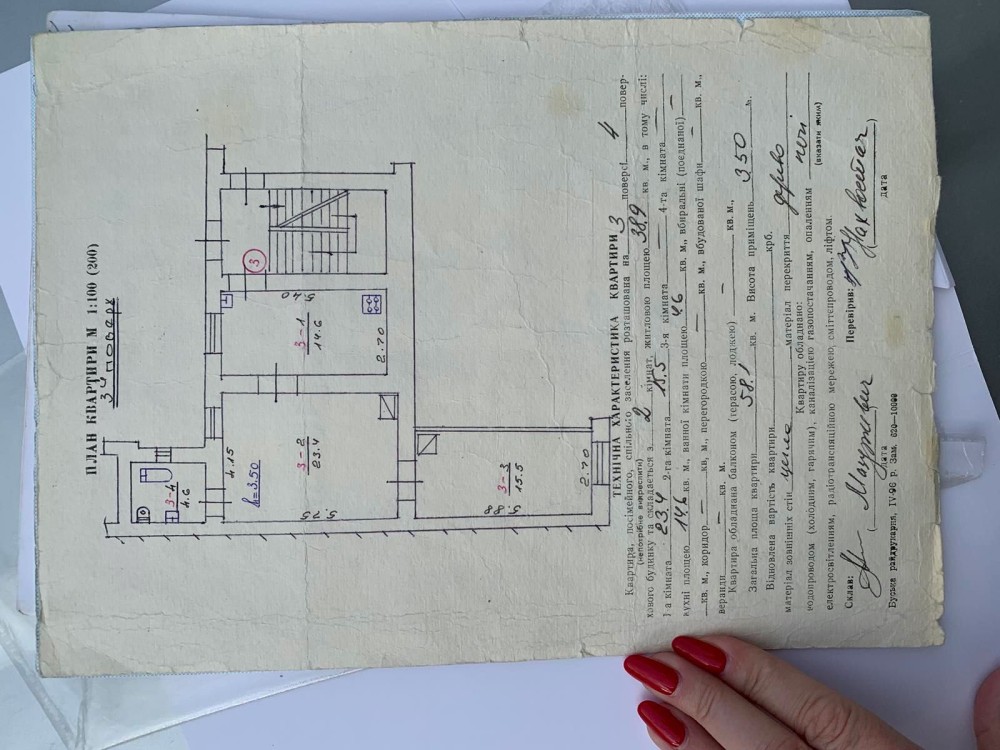 ПЛАН КВАРТИРИ М 1:100 (200)
3й поверх
3-4
4.6
4.15
h=3.50
3-2
23.4
5.75
3-1
14.6
5.40
2.70
3
3-3
15.5
5.88
2.70
ТЕХНІЧНА ХАРАКТЕРИСТИКА КВАРТИРИ 3
Квартира, посімейного, спільного заселення розташована на 3 поверсі 4 повер-
(непотрібне викреслити)
хового будинку та складається з 2 кімнат, житловою площею 38.9 кв. м., в тому числі:
1-а кімната 23.4 2-га кімната 15.5 3-я кімната — 4-та кімната —
кухні площею 14.6 кв. м., ванної кімнати площею 4.6 кв. м., вбиральні (поєднаної) —
кв. м., коридор — кв. м., перегородкою — кв. м., вбудованої шафи — кв. м.,
веранди — кв. м.
Квартира обладнана балконом (терасою, лоджею) — кв. м.,
Загальна площа квартири 58.1 кв. м. Висота приміщень 3.50 м.
Відновлена вартість квартири крб.
матеріал зовнішніх стін цегла матеріал перекриття дерево
Квартиру обладнано:
водопроводом (холодним, гарячим), каналізацією газопостачанням, опаленням печі
(вказати яким)
електроосвітленням, радіотрансляційною мережею, сміттєпроводом, ліфтом.
Склав: Перевірив:
дата дата
Буська райдрукарня, IV-96 р. Зам. 620—10000